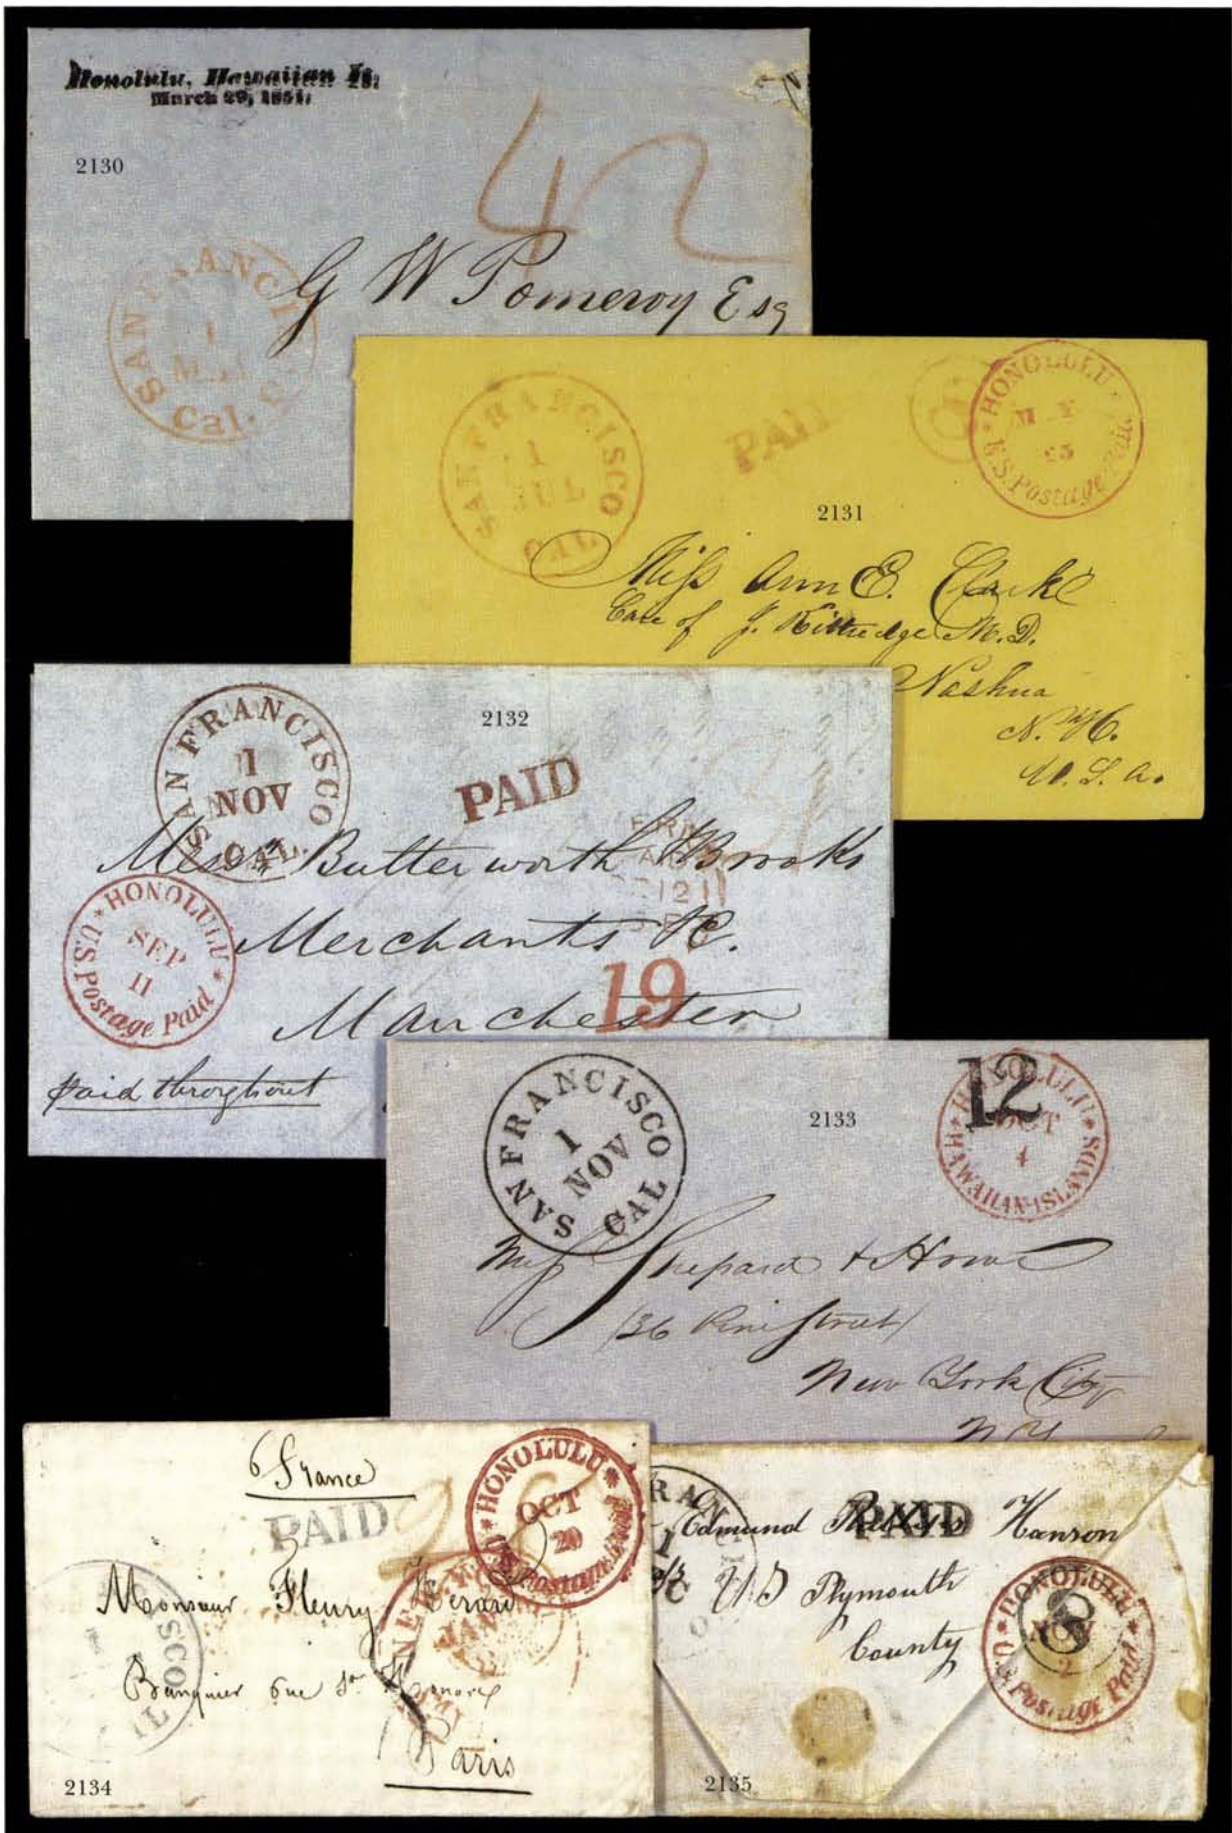 Honolulu, Hawaiian Is.
March 29, 1851.
2130
42
SAN FRANCISCO
1
Cal.
G W Pomeroy Esq
SAN FRANCISCO
1
JUL
CAL
PAID
HONOLULU
25
U.S. Postage Paid.
2131
Miss Ann E. Clarke
Care of J. Kittredge M.D.
Nashua
N. H.
U. S. A.
SAN FRANCISCO
1
NOV
CAL.
2132
PAID
Messrs Butterworth & Brooks
HONOLULU
SEP
11
U.S. Postage Paid
12
Merchants &c.
19
Manchester
paid throughout
SAN FRANCISCO
1
NOV
CAL
2133
12
HONOLULU
OCT
4
HAWAIIAN-ISLANDS
Shepard & Howe
136 Pine Street
New York City
N.Y.
France
PAID
HONOLULU
OCT
20
U.S. Postage Paid
Monsieur Fleury Herard
NEW
JAN
Banquier rue St Honoré
Paris
2134
1
PAID
Edmund Hanson
Plymouth
County
HONOLULU
NOV
2
U.S. Postage Paid
8
2135